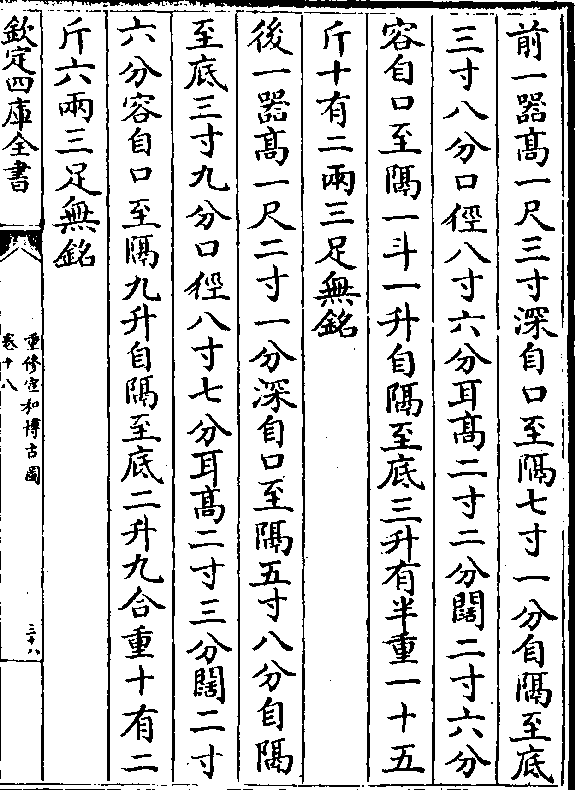 前一器髙一尺三寸深自口至隔七寸一分自隔至底
三寸八分口徑八寸六分耳髙二寸二分闊二寸六分
容自口至隔一斗一升自隔至底三升有半重一十五
斤十有二兩三足無銘
後一器髙一尺二寸一分深自口至隔五寸八分自隔
至底三寸九分口徑八寸七分耳髙二寸三分闊二寸
六分容自口至隔九升自隔至底二升九合重十有二
斤六兩三足無銘
欽定四庫全書
重修宣和博古圖
卷十八
三十八